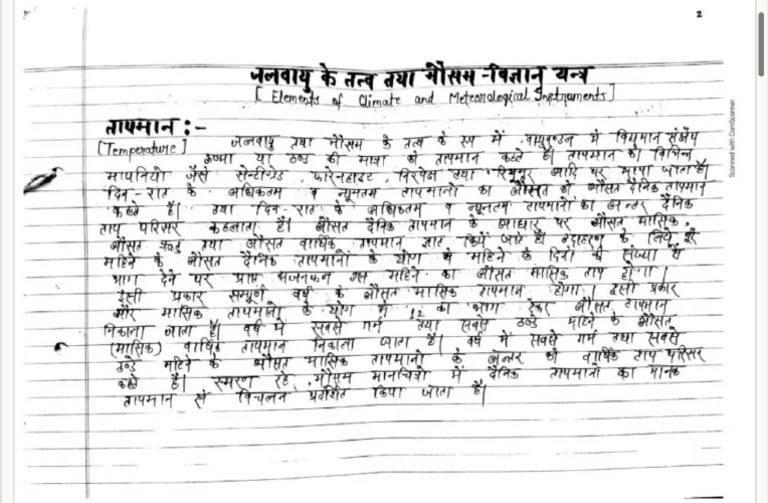 2
जलवायु के तत्व तथा मौसम-विज्ञान यन्त्र
[Elements of Climate and Meteorological Instruments]
तापमान :-
[Temperature] जलवायु तथा मौसम के तत्व के रूप में वायुमण्डल में विद्यमान संक्षेप
ऊष्मा या ठण्ड की मात्रा को तापमान कहते है। तापमान को विभिन्न
मापनियों जैसे सेन्टीग्रेड फारेनहाइट, निरपेक्ष तथा रियूमर आदि पर मापा जाता है।
दिन-रात के अधिकतम व न्यूनतम तापमानों का औसत को औसत दैनिक तापमान
कहते है। तथा दिन-रात के अधिकतम व न्यूनतम तापमानों का अन्तर दैनिक
ताप परिसर कहलाता है। औसत दैनिक तापमान के आधार पर औसत मासिक,
औसत ऋतु तथा औसत वार्षिक तापमान ज्ञात किये जाते है उदाहरण के लिये पूरे
महिने के औसत दैनिक तापमानों के योग में महिने के दिनों की संख्या से
भाग देने पर प्राप्त भजनफल उस महिने का औसत मासिक ताप होगा।
इसी प्रकार सम्पूर्ण वर्ष के औसत मासिक तापमान होगा। इसी प्रकार
और मासिक तापमानों के योग में 12 का भाग देकर औसत तापमान
निकाला जाता है। वर्ष में सबसे गर्म तथा सबसे ठण्डे महिने के औसत
(मासिक) वार्षिक तापमान निकाला जाता है। वर्ष में सबसे गर्म तथा सबसे
ठण्डे महिने के औसत मासिक तापमानों के अन्तर को वार्षिक ताप परिसर
कहते है। स्मरण रहे, मौसम मानचित्रों में दैनिक तापमानों का मानक
तापमान से विचलन प्रदर्शित किया जाता है।
Scanned with CamScanner